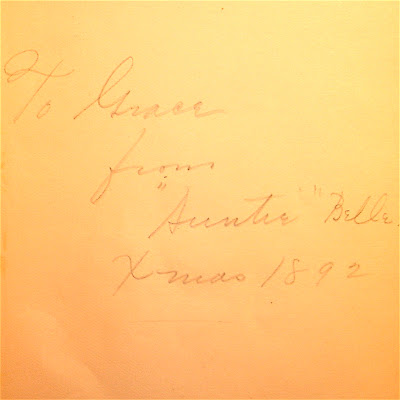 To Grace
from
"Auntie" Belle.
Xmas 1892